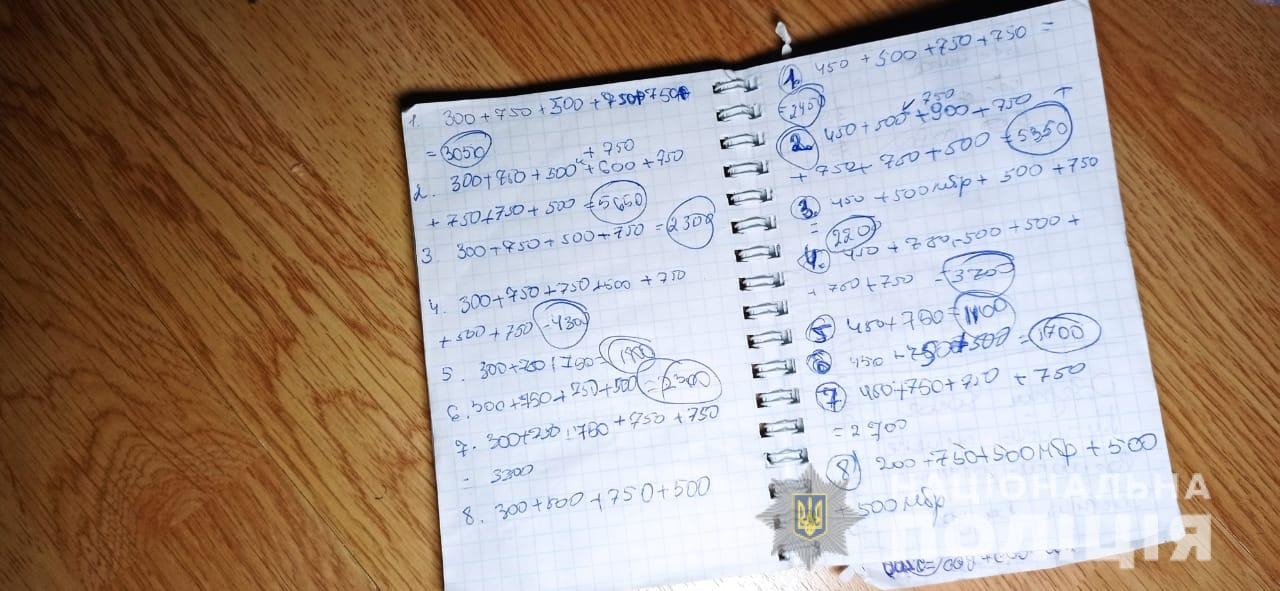 1. 300+750+500+750+750
=3050
+750
2. 300+750+500+600+750
+750+750+500=5650
3 300+750+500+750=2300
4. 300+750+750+500+750
+500+750=4300
5. 300+750+750=1800
6. 300+750+750+500=2300
7. 300+750+750+750+750
= 3300
8. 300+500+750+500
1. 450+500+750+750=
=2450
750
2. 450+500+900+750+
+750+750+500=5350
3. 450+500мбр+500+750
=2200
4. 450+750+500+500+
+750+750=3700
5 450+750=1100
6 450+750+500=1700
7 450+750+750+750
=2700
8 200+750+500мбр+500
+500мбр
НАЦІОНАЛЬНА
ПОЛІЦІЯ